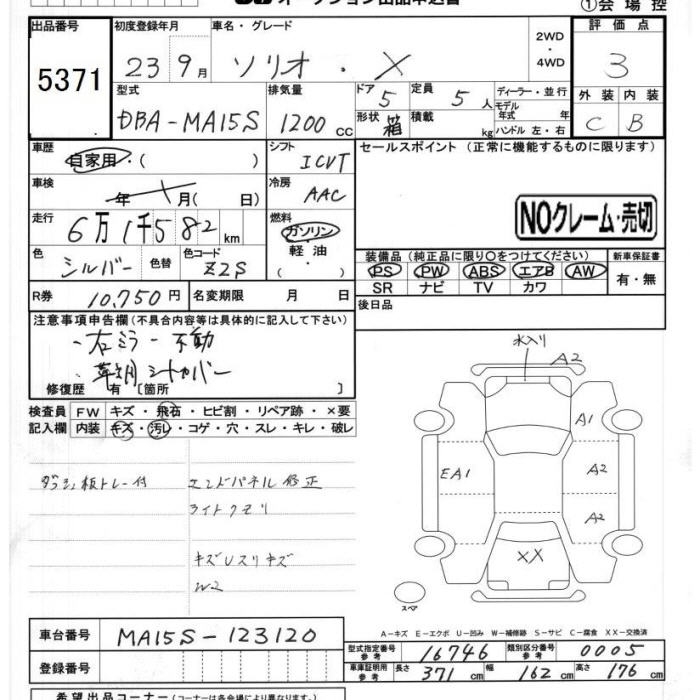 オークション出品申込書
①会場控
出品番号 5371
初度登録年月 23 9月
車名・グレード ソリオ・X
2WD・4WD
評価点 3
外装 C 内装 B
型式 DBA-MA15S
排気量 1200 cc
ドア 5 定員 5人
形状 箱 積載 kg
ディーラー・並行
モデル年式 年
ハンドル 左・右
車歴 自家用・( )
シフト ICVT
セールスポイント (正常に機能するものに限ります)
車検 年 月(日)
冷房 AAC
NOクレーム・売切
走行 6万1千582km
燃料 ガソリン
軽油
( ・ )
色 シルバー 色替
色コード ZZS
装備品 (純正品に限り○をつけてください)
PS PW ABS エアB AW
SR ナビ TV カワ
新車保証書 有・無
R券 10,750円
名変期限 月 日
後日品
注意事項申告欄(不具合内容等は具体的に記入して下さい)
・右ミラー 不動
シートカバー
修復歴 有 [箇所 ]
検査員 FW キズ・飛石・ヒビ割・リペア跡・×要
記入欄 内装 キズ・汚レ・コゲ・穴・スレ・キレ・破レ
水入り
A2
A1
EA1
A2
A2
XX
スペア
板トレー付
エンドパネル修正
ライトクモリ
キズUスリキズ
W2
A-キズ E-エクボ U-凹み W-補修跡 S-サビ C-腐食 XX-交換済
車台番号 MA15S-123120
登録番号
型式指定番号 参考 16746
類別区分番号 参考 0005
車庫証明用 参考 長さ 371cm 幅 162cm 高さ 176cm
希望出品コーナー(コーナーは各会場により異なります。)